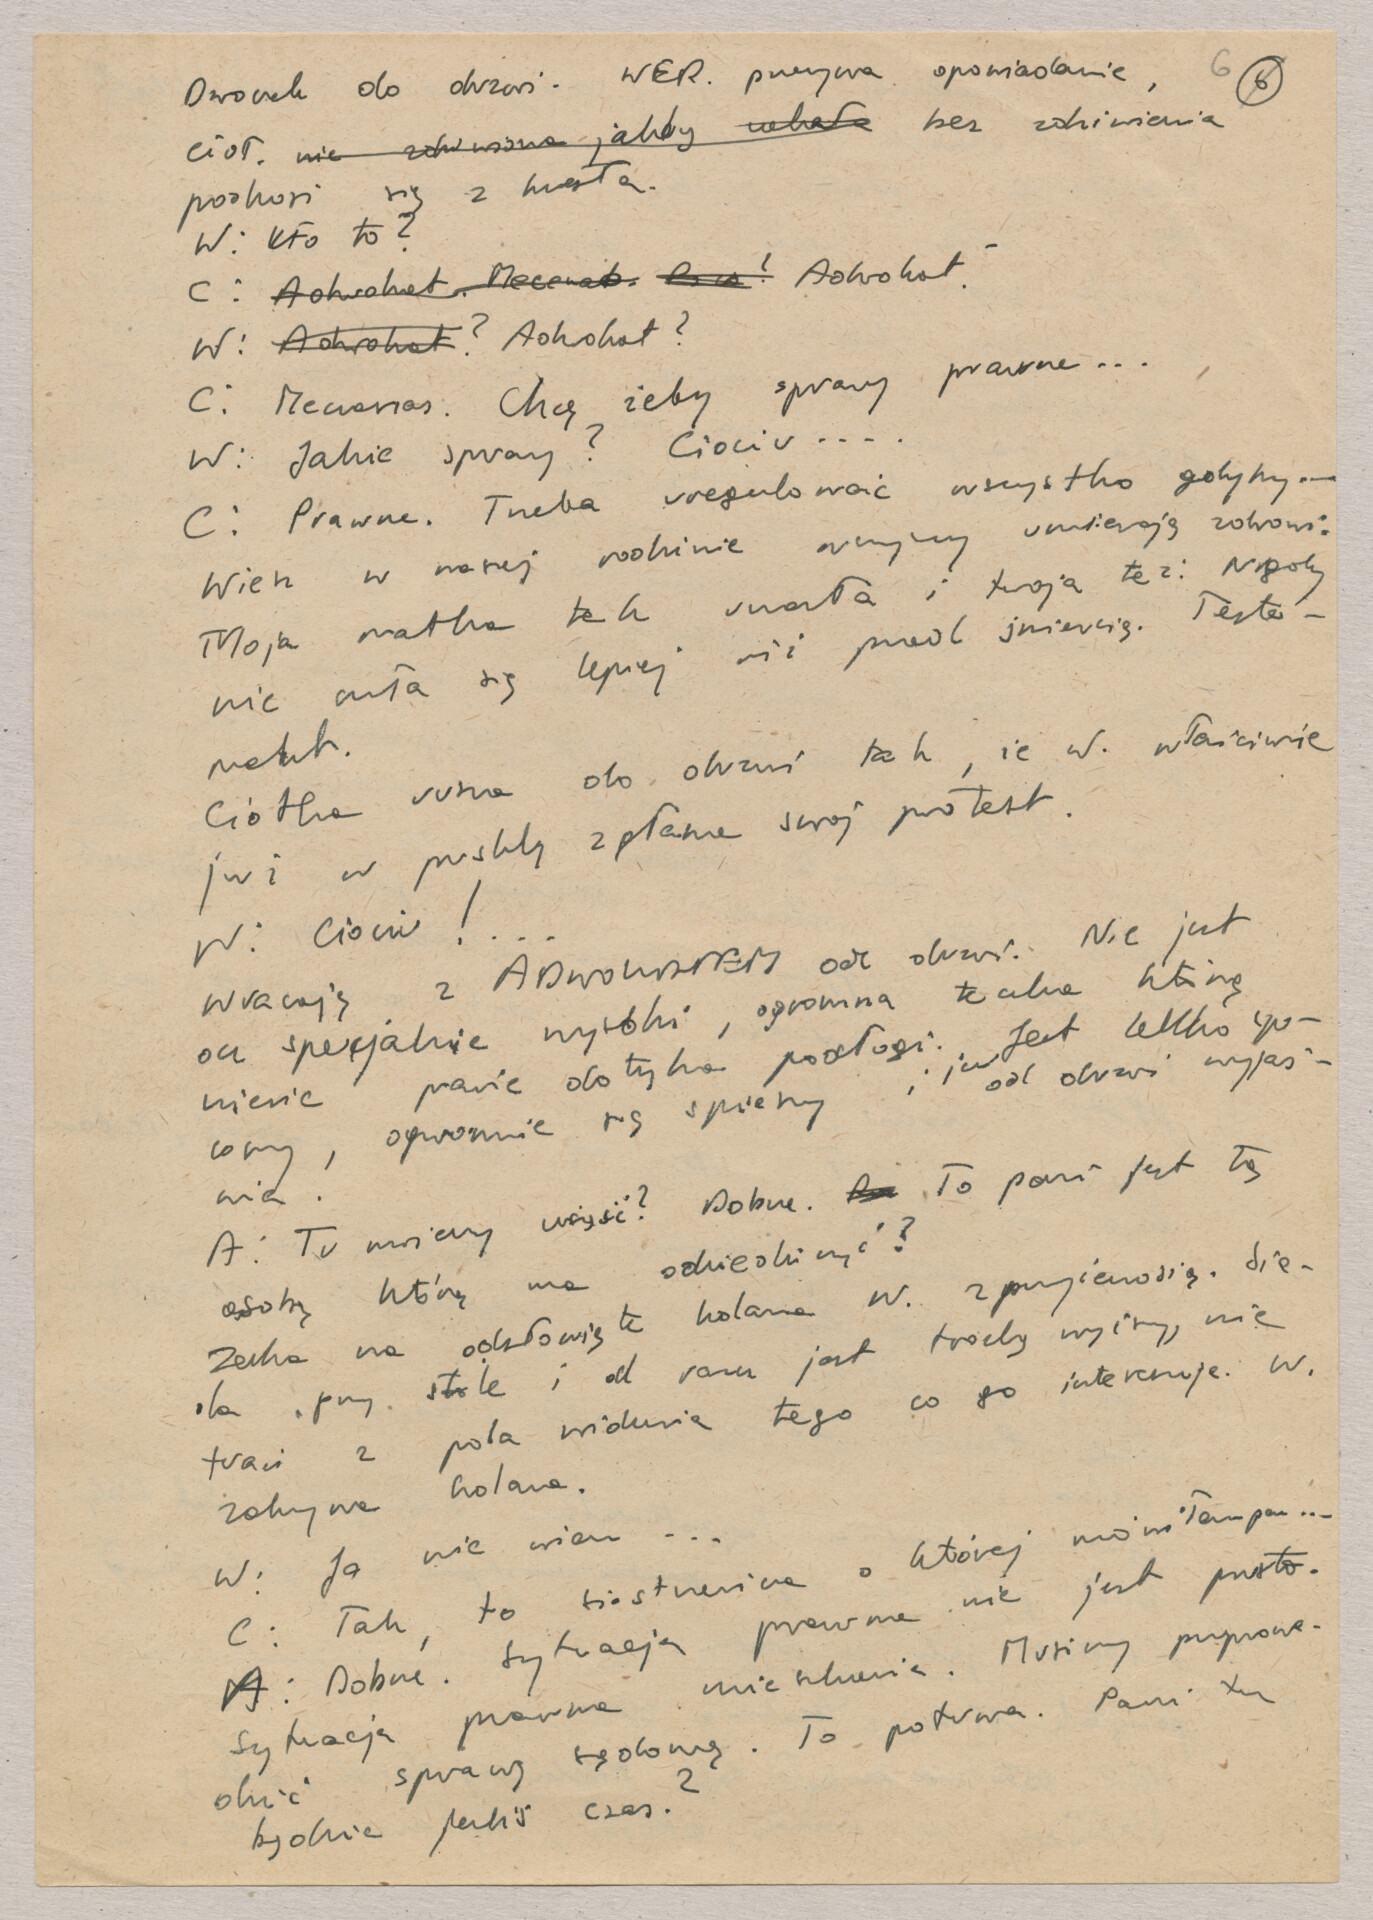 Dzwonek do drzwi. WER. przerywa opowiadanie, 6 6
Ciot. nie zdziwiona jakby czekała bez zdziwienia
podnosi się z krzesła.
W: Kto to?
C: Adwokat. Mecenas. Adwokat.
W: Adwokat? Adwokat?
C: Mecenas. Chcę żeby sprawy prawne...
W: Jakie sprawy? Ciociu....
C: Prawne. Trzeba uregulować wszystko gdyby...
Wiesz w naszej rodzinie wszyscy umierają zdrowi.
Moja matka tak umarła i twoja też. Nigdy
nie czuła się lepiej niż przed śmiercią. Testa-
ment.
Ciotka rusza do drzwi tak, że W. właściwie
już w pustkę zgłasza swój protest.
W: Ciociu!...
Wracają z ADWOKATEM od drzwi. Nie jest
on specjalnie wysoki, ogromna teczka którą
niesie prawie dotyka podłogi. Jest lekko spo-
cony, ogromnie się spieszy i już od drzwi wyjaś-
nia.
A: Tu możemy usiąść? Dobrze. To pani jest tą
osobą którą ma odziedziczyć?
Zerka na odsłonięte kolana W. z przyjemnością. Sia-
da przy stole i od razu jest trochę wyższy, nie
traci z pola widzenia tego co go interesuje. W.
zakrywa kolana.
W: Ja nie wiem...
C: Tak, to siostrzenica o której mówiłam panu...
A: Dobrze. Sytuacja prawna nie jest prosta.
Sytuacja prawna mieszkania. Musimy przeprowa-
dzić sprawę sądową. To potrwa. Pani tu
będzie jakiś czas?